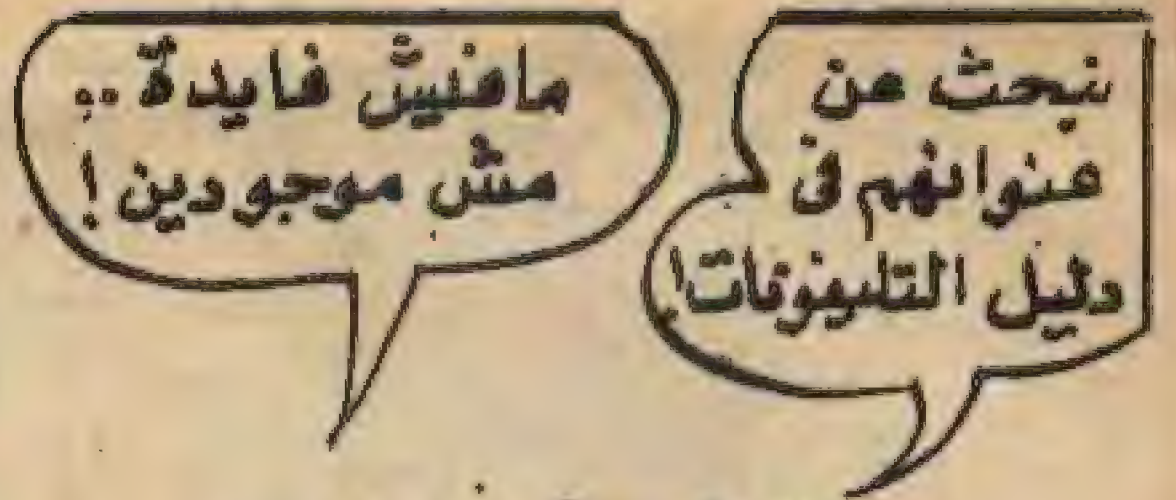 نبحث عن
عنوانهم فى
دليل التليفونات!
مافيش فايدة ..
مش موجودين !